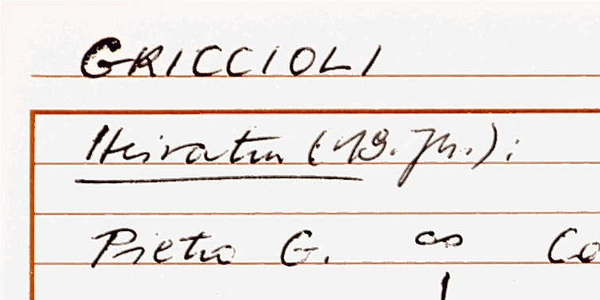 GRICCIOLI
Heiraten (19. Jh.):
Pietro G. ∞ Co